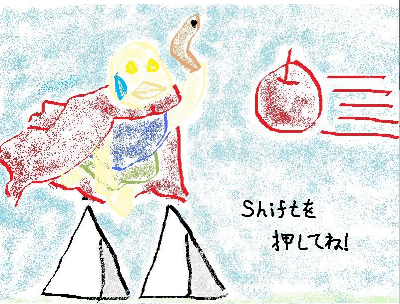 Shiftを
押してね!